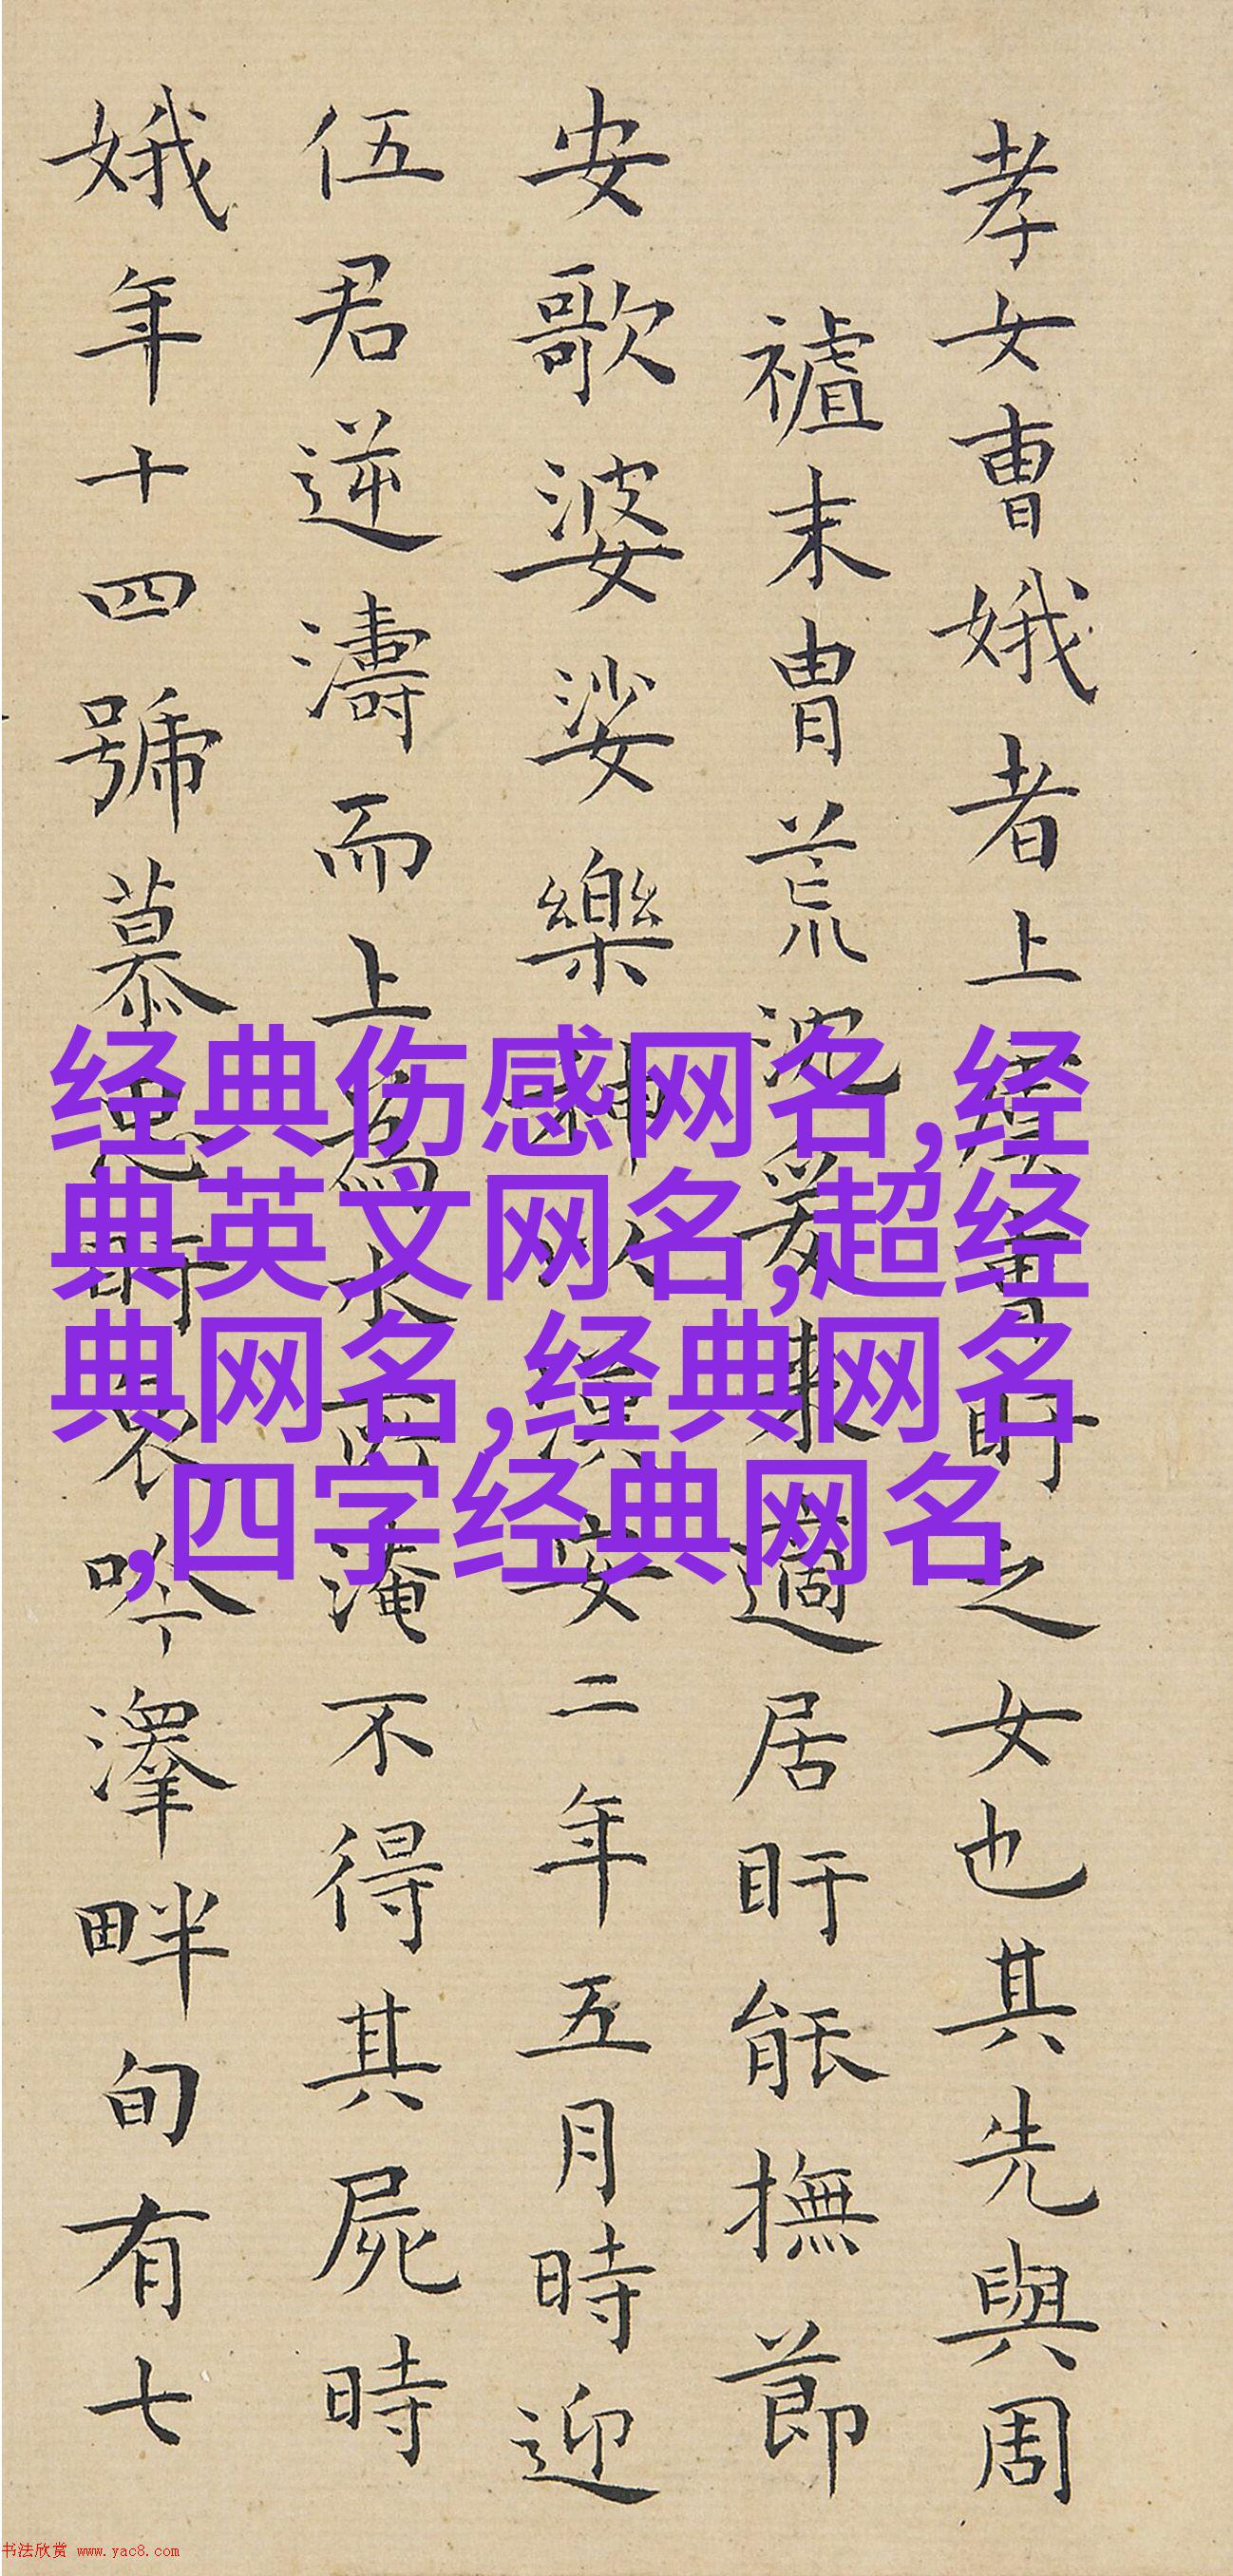 孝女曹娥者上虞曹盱之女也其先與周
末胄荒沈爰來適居盱能撫節
安歌婆娑樂神以漢安二年五月時迎
伍君逆濤而上為水所淹不得其屍時
娥年十四號慕思盱哀吟澤畔旬有七
经典伤感网名,经
典英文网名,超经
典网名,经典网名
,四字经典网名
书法欣赏 www.yac8.com